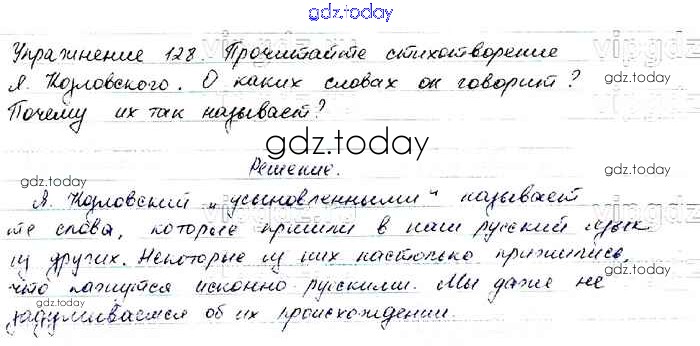 gdz.today
Упражнение 128. Прочитайте стихотворение
Я. Козловского. О каких словах он говорит?
Почему их так называет?
gdz.today
Решение.
Я. Козловский „усыновленными" называет
те слова, которые пришли в наш русский язык
из других. Некоторые из них настолько прижились,
что кажутся исконно русскими. Мы даже не
задумываемся об их происхождении.
gdz.today
gdz.today
gdz.today
gdz.today
gdz.today
gdz.today
gdz.today